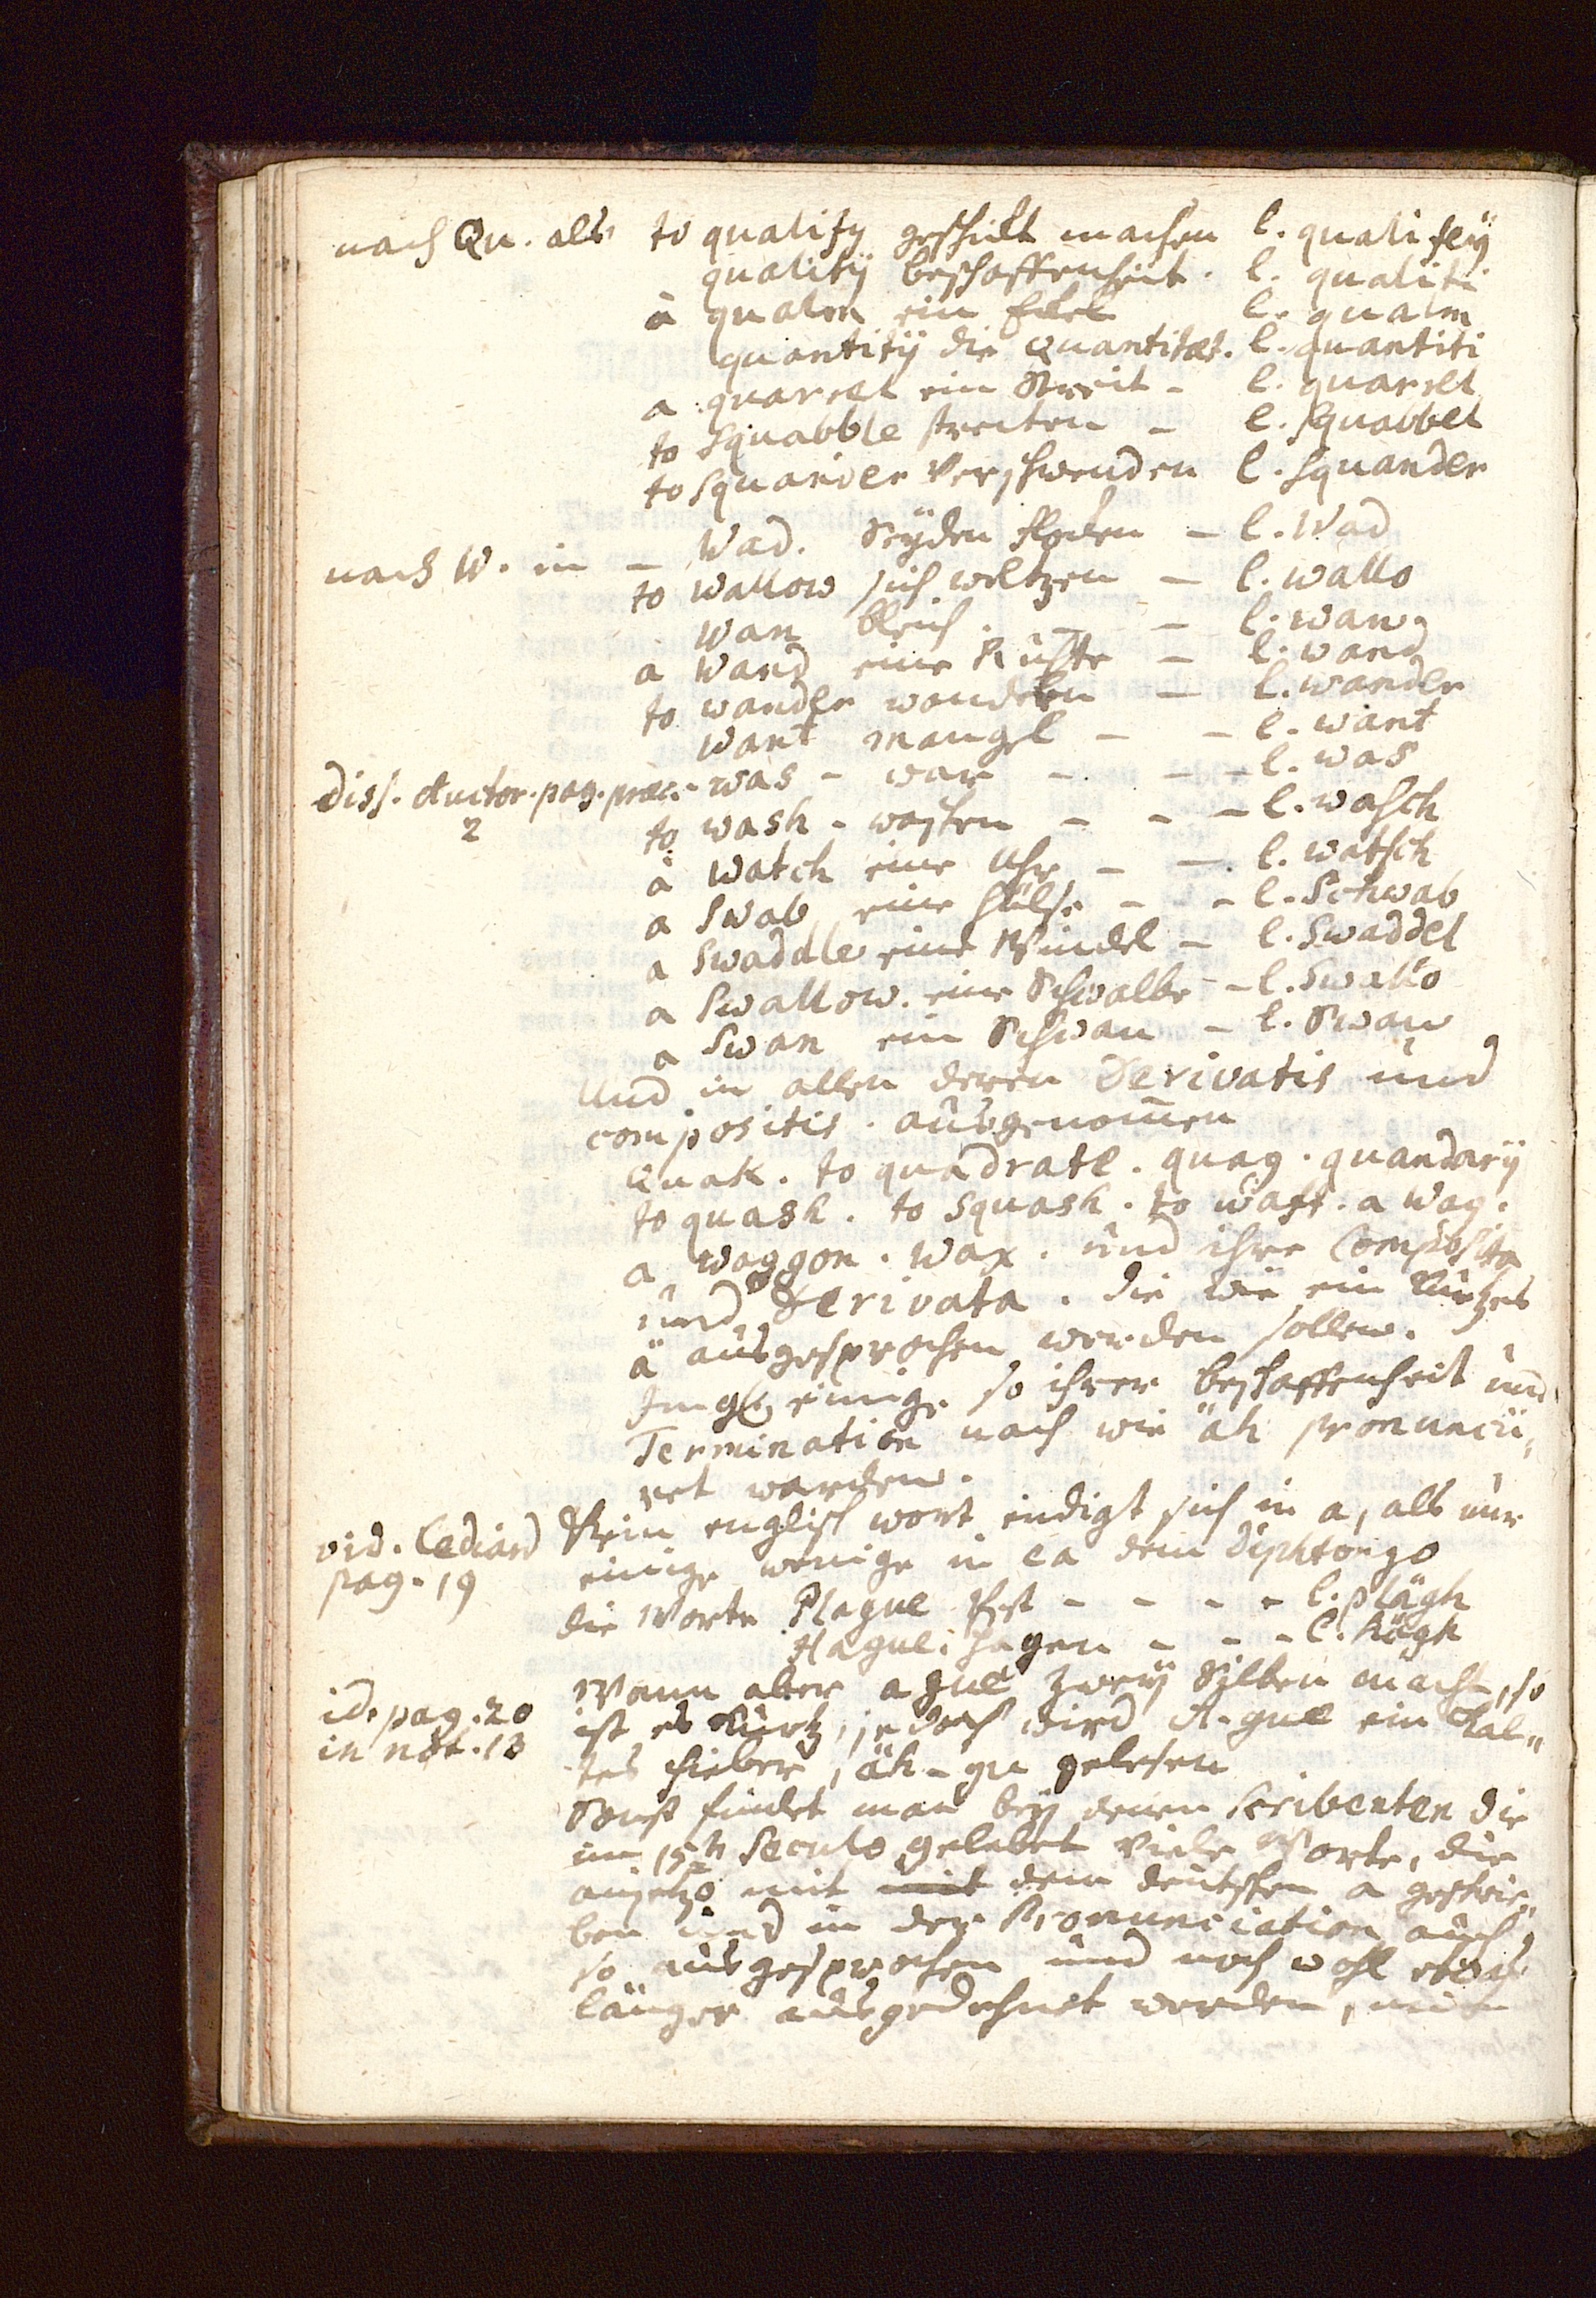 nach Qu. als to qualify geschickt machen l. qualifey
qualitÿ beschaffenheit. l. qualiti
a qualm ein Eckel l. qualm
quantitÿ die Quantitæt. l. quantiti
a quarrel ein Streit - l. quarrel
to Squabble streiten - l. Squabbel
to Squander verschwenden l. Squander
nach W. in - Wad. Seÿden flocken - l. Wad
to wallow sich weltzen - l. wallo
wan bleich. - - l. wan.
a Wand eine Ruhte - l. wand
to wander wandeln - l. wander
want mangel - - l. want
diss. Auctor. pag. præc. was - war - - - l. was
2 to wash - waschen - - - l. wasch
a watch eine Uhr - - l. watsch
a Swab eine hülse - - l. Schwab
a Swaddle eine Windel - l. Swaddel
a Swallow. eine Schwalbe - l. Swallo
a Swan ein Schwan - l. Swan
Und in allen deren Derivatis und
compositis. ausgenom̄en
Quak. to quadrate. quag. quandarÿ
to quash. to Squash. to waft. a Wag.
a waggon. Wax. und ihre Composita
und Derivata. die wie ein kurtzes
ä ausgesprochen werden sollen.
Imgl. einige so ihrer beschaffenheit und
Termination nach wie äh pronuncii„
ret warden.
vid. Lediard Kein englisch wort endigt sich in a, als nur
pag. 19 einige wenige in ea dem Diphtongo
die Worte Plague Pest - - - - l. plägh
Hague: Hagen - - - l. hägh
id. pag. 20 Wann aber ague zweÿ Silben macht, so
in not. 13 ist es kurtz, jedoch wird A-gue ein kal„
tes fieber, äh-gu gelesen
Sonst findet man beÿ denen Scribenten die
im 15h Seculo gelebet viele Worte, die
anjetzo mit mit dem deutschen a geschrie„
ben und in der Pronunciation auch
so ausgesprochen und noch wohl etwas
länger ausgedehnet werden, mit